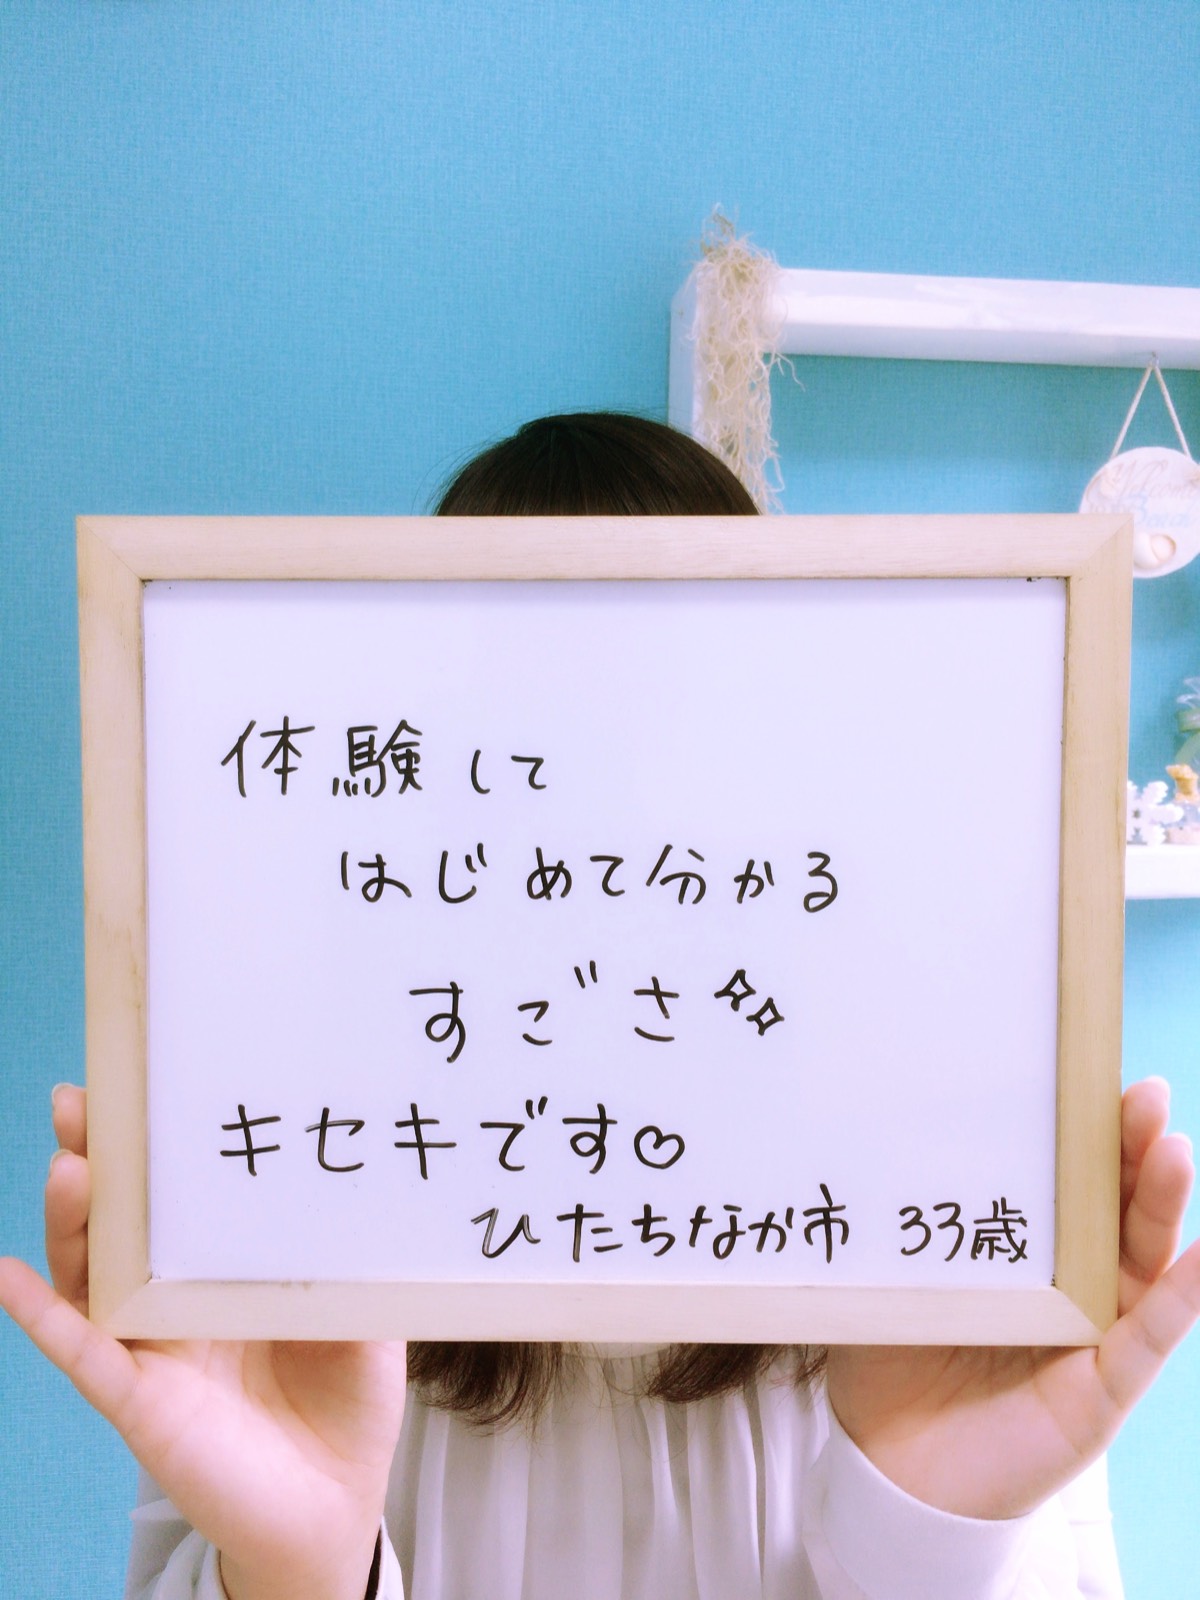 体験して
はじめて分かる
すごさ
キセキです♡
ひたちなか市 33歳
Welcome